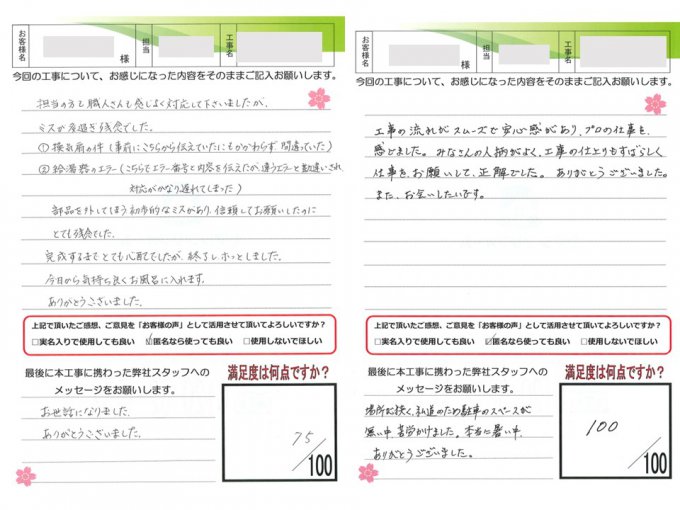 お客様名
様
担当
工事名
今回の工事について、お感じになった内容をそのままご記入お願いします。
担当の方も職人さんも感じよく対応して下さいましたが、
ミスが多過ぎ残念でした。
①換気扇の件(事前にこちらから伝えていたにもかかわらず間違っていた)
②給湯器のエラー(こちらでエラー番号と内容を伝えたが、違うエラーと勘違いされ
対応がかなり遅れてしまった)
部品を外してしまう初歩的なミスがあり、信頼してお願いしたのに
とても残念でした。
完成するまでとても心配でしたが、終了しホッとしました。
今日から気持ち良くお風呂に入れます。
ありがとうございました。
上記で頂いたご感想、ご意見を「お客様の声」として活用させて頂いてよろしいですか?
□実名入りで使用しても良い ☑匿名なら使っても良い □使用しないでほしい
最後に本工事に携わった弊社スタッフへの
メッセージをお願いします。
お世話になりました。
ありがとうございました。
満足度は何点ですか?
75
/100
お客様名
様
担当
工事名
今回の工事について、お感じになった内容をそのままご記入お願いします。
工事の流れがスムーズで安心感があり、プロの仕事を、
感じました。みなさんの人柄がよく、工事の仕上りもすばらしく
仕事を、お願いして、正解でした。ありがとうございました。
また、お会いしたいです。
上記で頂いたご感想、ご意見を「お客様の声」として活用させて頂いてよろしいですか?
□実名入りで使用しても良い ☑匿名なら使っても良い □使用しないでほしい
最後に本工事に携わった弊社スタッフへの
メッセージをお願いします。
場所も狭く、私道のため駐車のスペースが
無い中、苦労かけました。本当に暑い中、
ありがとうございました。
満足度は何点ですか?
100
/100